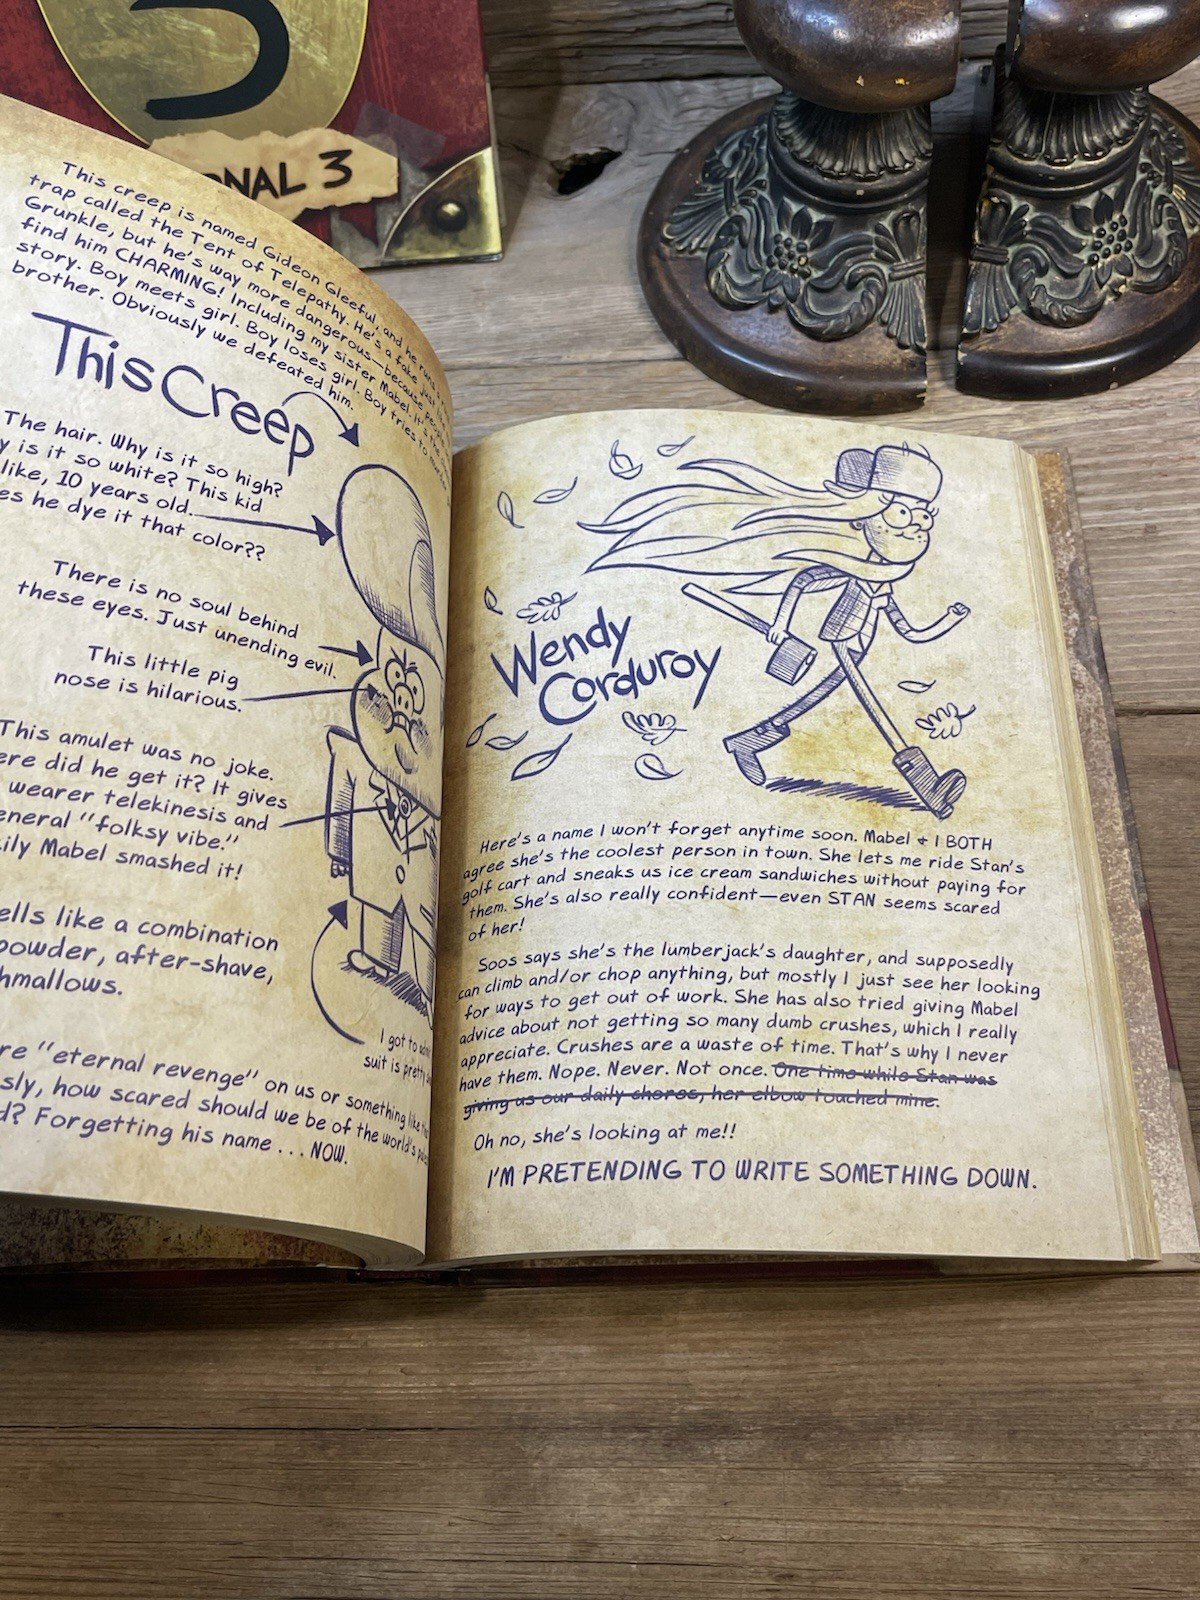 3
NAL 3
This creep is named Gideon Gleeful, and he runs a
trap called the Tent of Telepathy. He's a fake just like
Grunkle, but he's way more dangerous—because people
find him CHARMING! Including my sister Mabel. It's the
story. Boy meets girl. Boy loses girl. Boy tries to murder
brother. Obviously we defeated him.
This Creep
The hair. Why is it so high?
y is it so white? This kid
like, 10 years old.
es he dye it that color??
There is no soul behind
these eyes. Just unending evil.
This little pig
nose is hilarious.
This amulet was no joke.
ere did he get it? It gives
wearer telekinesis and
eneral "folksy vibe."
ily Mabel smashed it!
ells like a combination
powder, after-shave,
hmallows.
I got to
suit is pretty
re "eternal revenge" on us or something like
sly, how scared should we be of the world's
d? Forgetting his name . . . NOW.
Wendy
Corduroy
Here's a name I won't forget anytime soon. Mabel + I BOTH
agree she's the coolest person in town. She lets me ride Stan's
golf cart and sneaks us ice cream sandwiches without paying for
them. She's also really confident—even STAN seems scared
of her!
Soos says she's the lumberjack's daughter, and supposedly
can climb and/or chop anything, but mostly I just see her looking
for ways to get out of work. She has also tried giving Mabel
advice about not getting so many dumb crushes, which I really
appreciate. Crushes are a waste of time. That's why I never
have them. Nope. Never. Not once. One time while Stan was
giving us our daily chores, her elbow touched mine.
Oh no, she's looking at me!!
I'M PRETENDING TO WRITE SOMETHING DOWN.